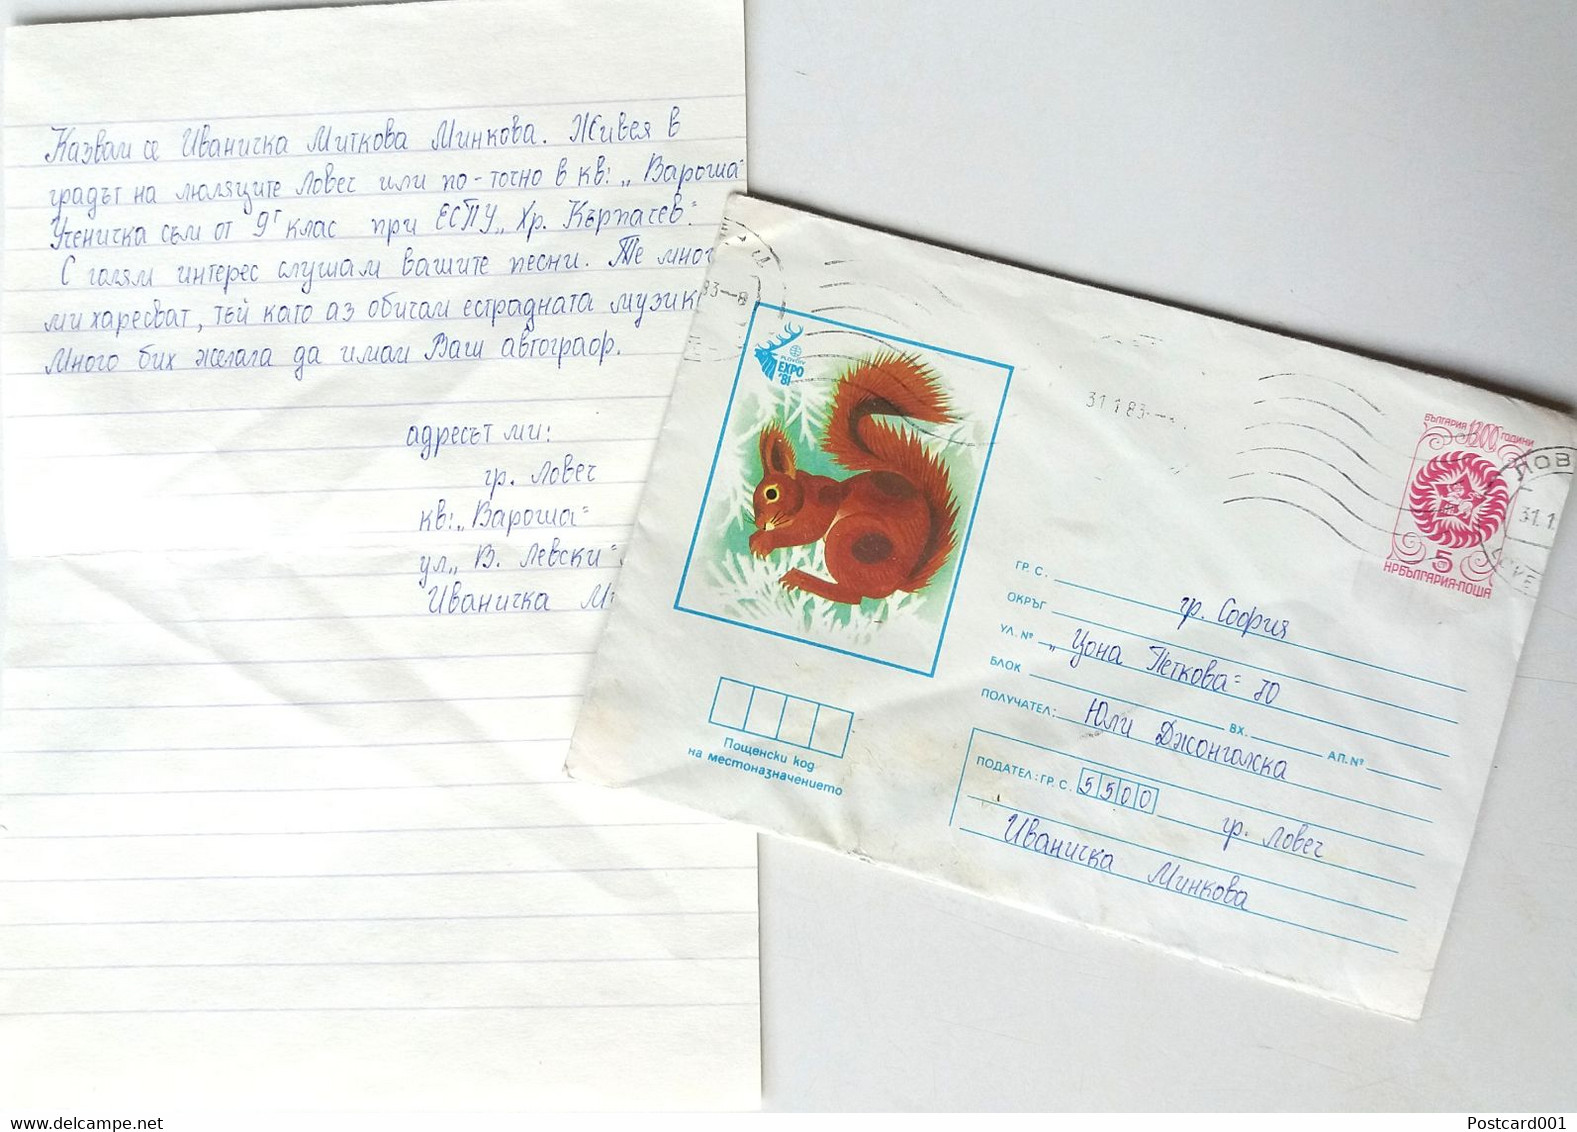 Казвам се Иваничка Миткова Минкова. Живея в
градът на люляците Ловеч или по-точно в кв: „Вароша"
Ученичка съм от 9г клас при ЕСПУ „Хр. Кърпачев".
С голям интерес слушам вашите песни. Те мног
ми харесват, тъй като аз обичам естрадната музик
Много бих желала да имам Ваш автограф.
адресът ми:
гр. Ловеч
кв: „Вароша"
ул „В. Левски"
Иваничка М
PLOVDIV
EXPO
'81
31.1.83
БЪЛГАРИЯ 1300 ГОДИНИ
5
НРБЪЛГАРИЯ·ПОЩА
ЛОВ
31.1
ГР. С. гр. София
ОКРЪГ
УЛ. № „Цона Петкова" 70
БЛОК ВХ. АП. №
ПОЛУЧАТЕЛ: Юли Джонгалска
ПОДАТЕЛ: ГР. С. 5500 гр. Ловеч
Иваничка Минкова
Пощенски код
на местоназначението
Postcard001